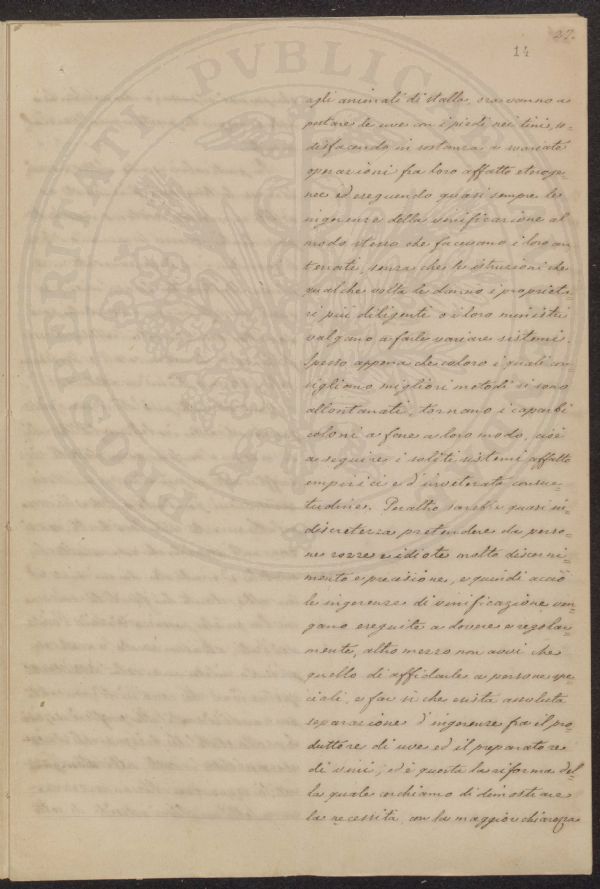 27.
14
PROSPERITATI PVBLIC
agli animali di stalla, ora vanno a
pestare le uve con i piedi nei tini, so-
disfacendo in sostanza a svariate
operazioni fra loro affatto eteroge-
nee ed eseguendo quasi sempre le
ingerenze della vinificazione al
modo stesso che facevano i loro an
tenati, senza che le istruzioni che
qualche volta le danno i propriet=
ri più diligenti o i loro ministri
valgano a farle variare sistemi.
Spesso appena che coloro i quali con
sigliano migliori metodi si sono
allontanati, tornano i caparbi
coloni a fare a loro modo, cioè
a seguire i soliti sistemi affatto
empirici e d'inveterata consue-
tudine. Peraltro sarebbe quasi in-
discretezza pretendere da perso-
ne rozze e idiote molto discerni-
mento e precisione, e quindi acciò
le ingerenze di vinificazione ven-
gano eseguite a dovere e regolar-
mente, altro mezzo non avvi che
quello di affidarle a persone spe
ciali, e far sì che esista assoluta
separazione d'ingerenze fra il pro-
duttore di uve ed il preparatore
di vini; ed è questa la riforma del-
la quale cerchiamo di dimostrare
la necessità, con la maggior chiarezza